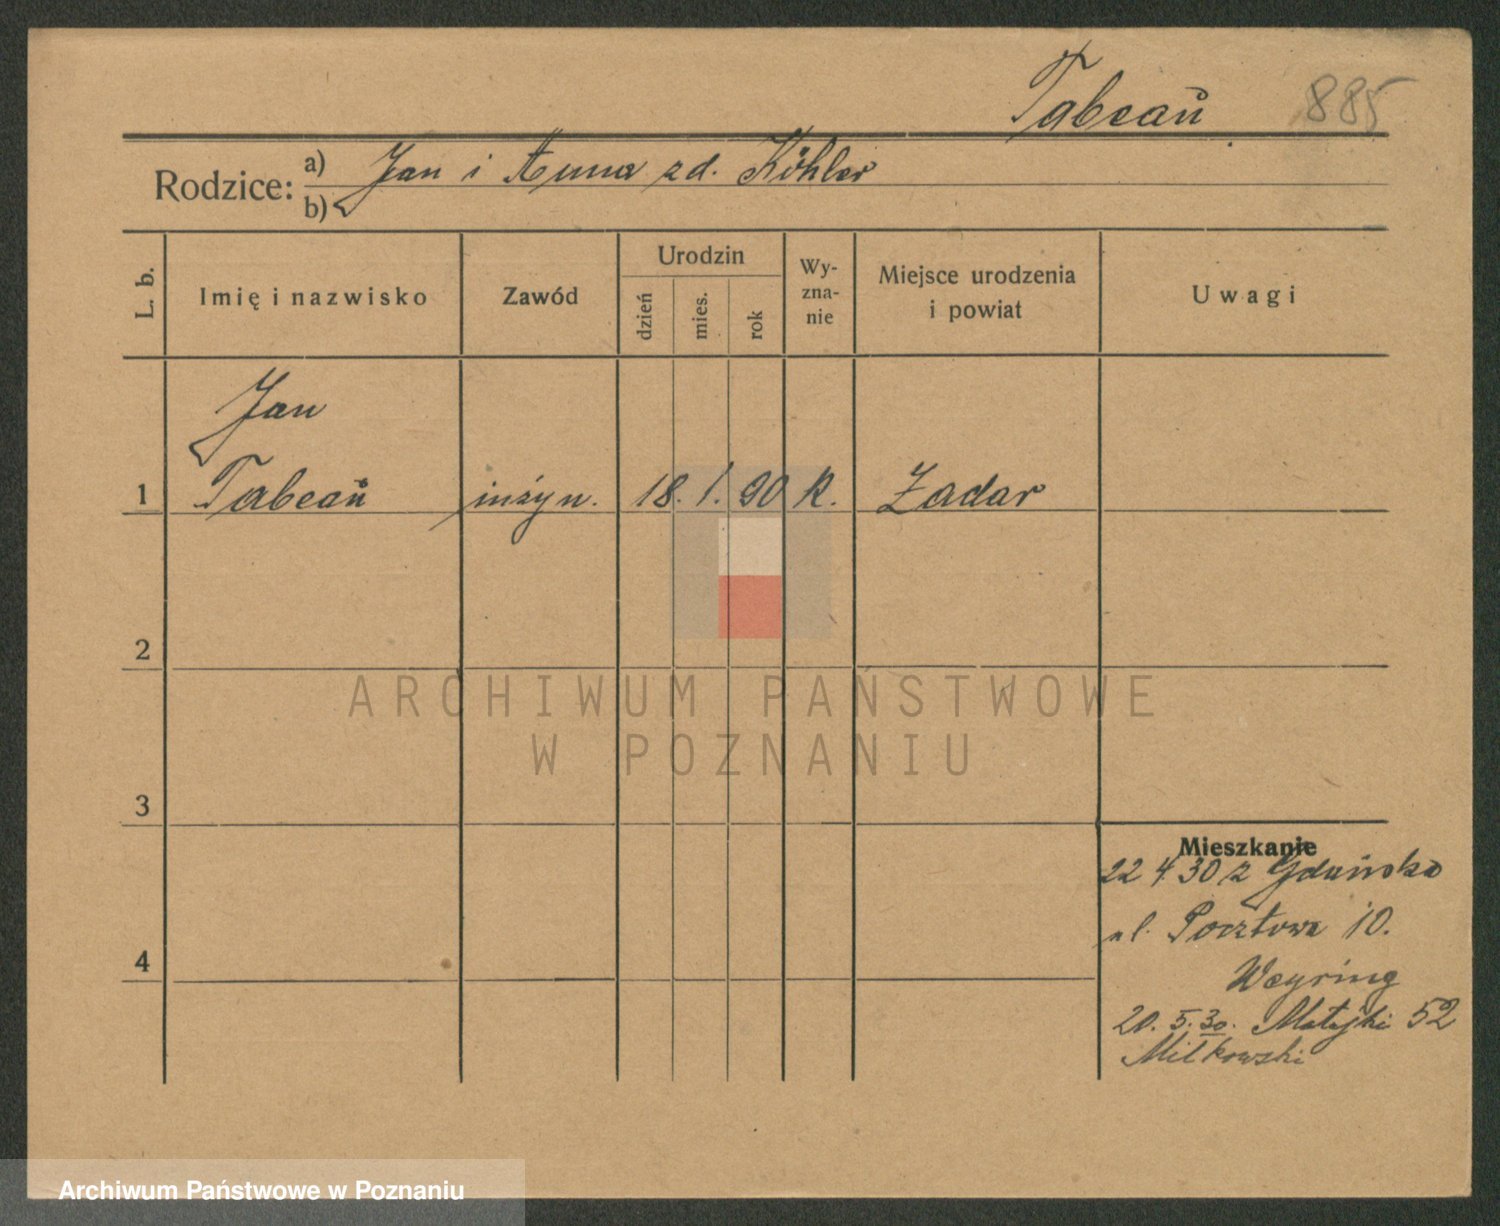 Tabeau 885
Rodzice: a) Jan i Anna zd. Köhler
b)
L. b. Imię i nazwisko Zawód Urodzin dzień mies. rok Wyznanie Miejsce urodzenia i powiat Uwagi
Jan
1 Tabeau inżyn. 18. 1. 90 k. Zadar
2
ARCHIWUM PAŃSTWOWE
W POZNANIU
3
Mieszkanie
22 4 30 z Gdańska
ul. Pocztowa 10.
4
Weyring
20. 5. 30. Matejki 52
Milkowski
Archiwum Państwowe w Poznaniu